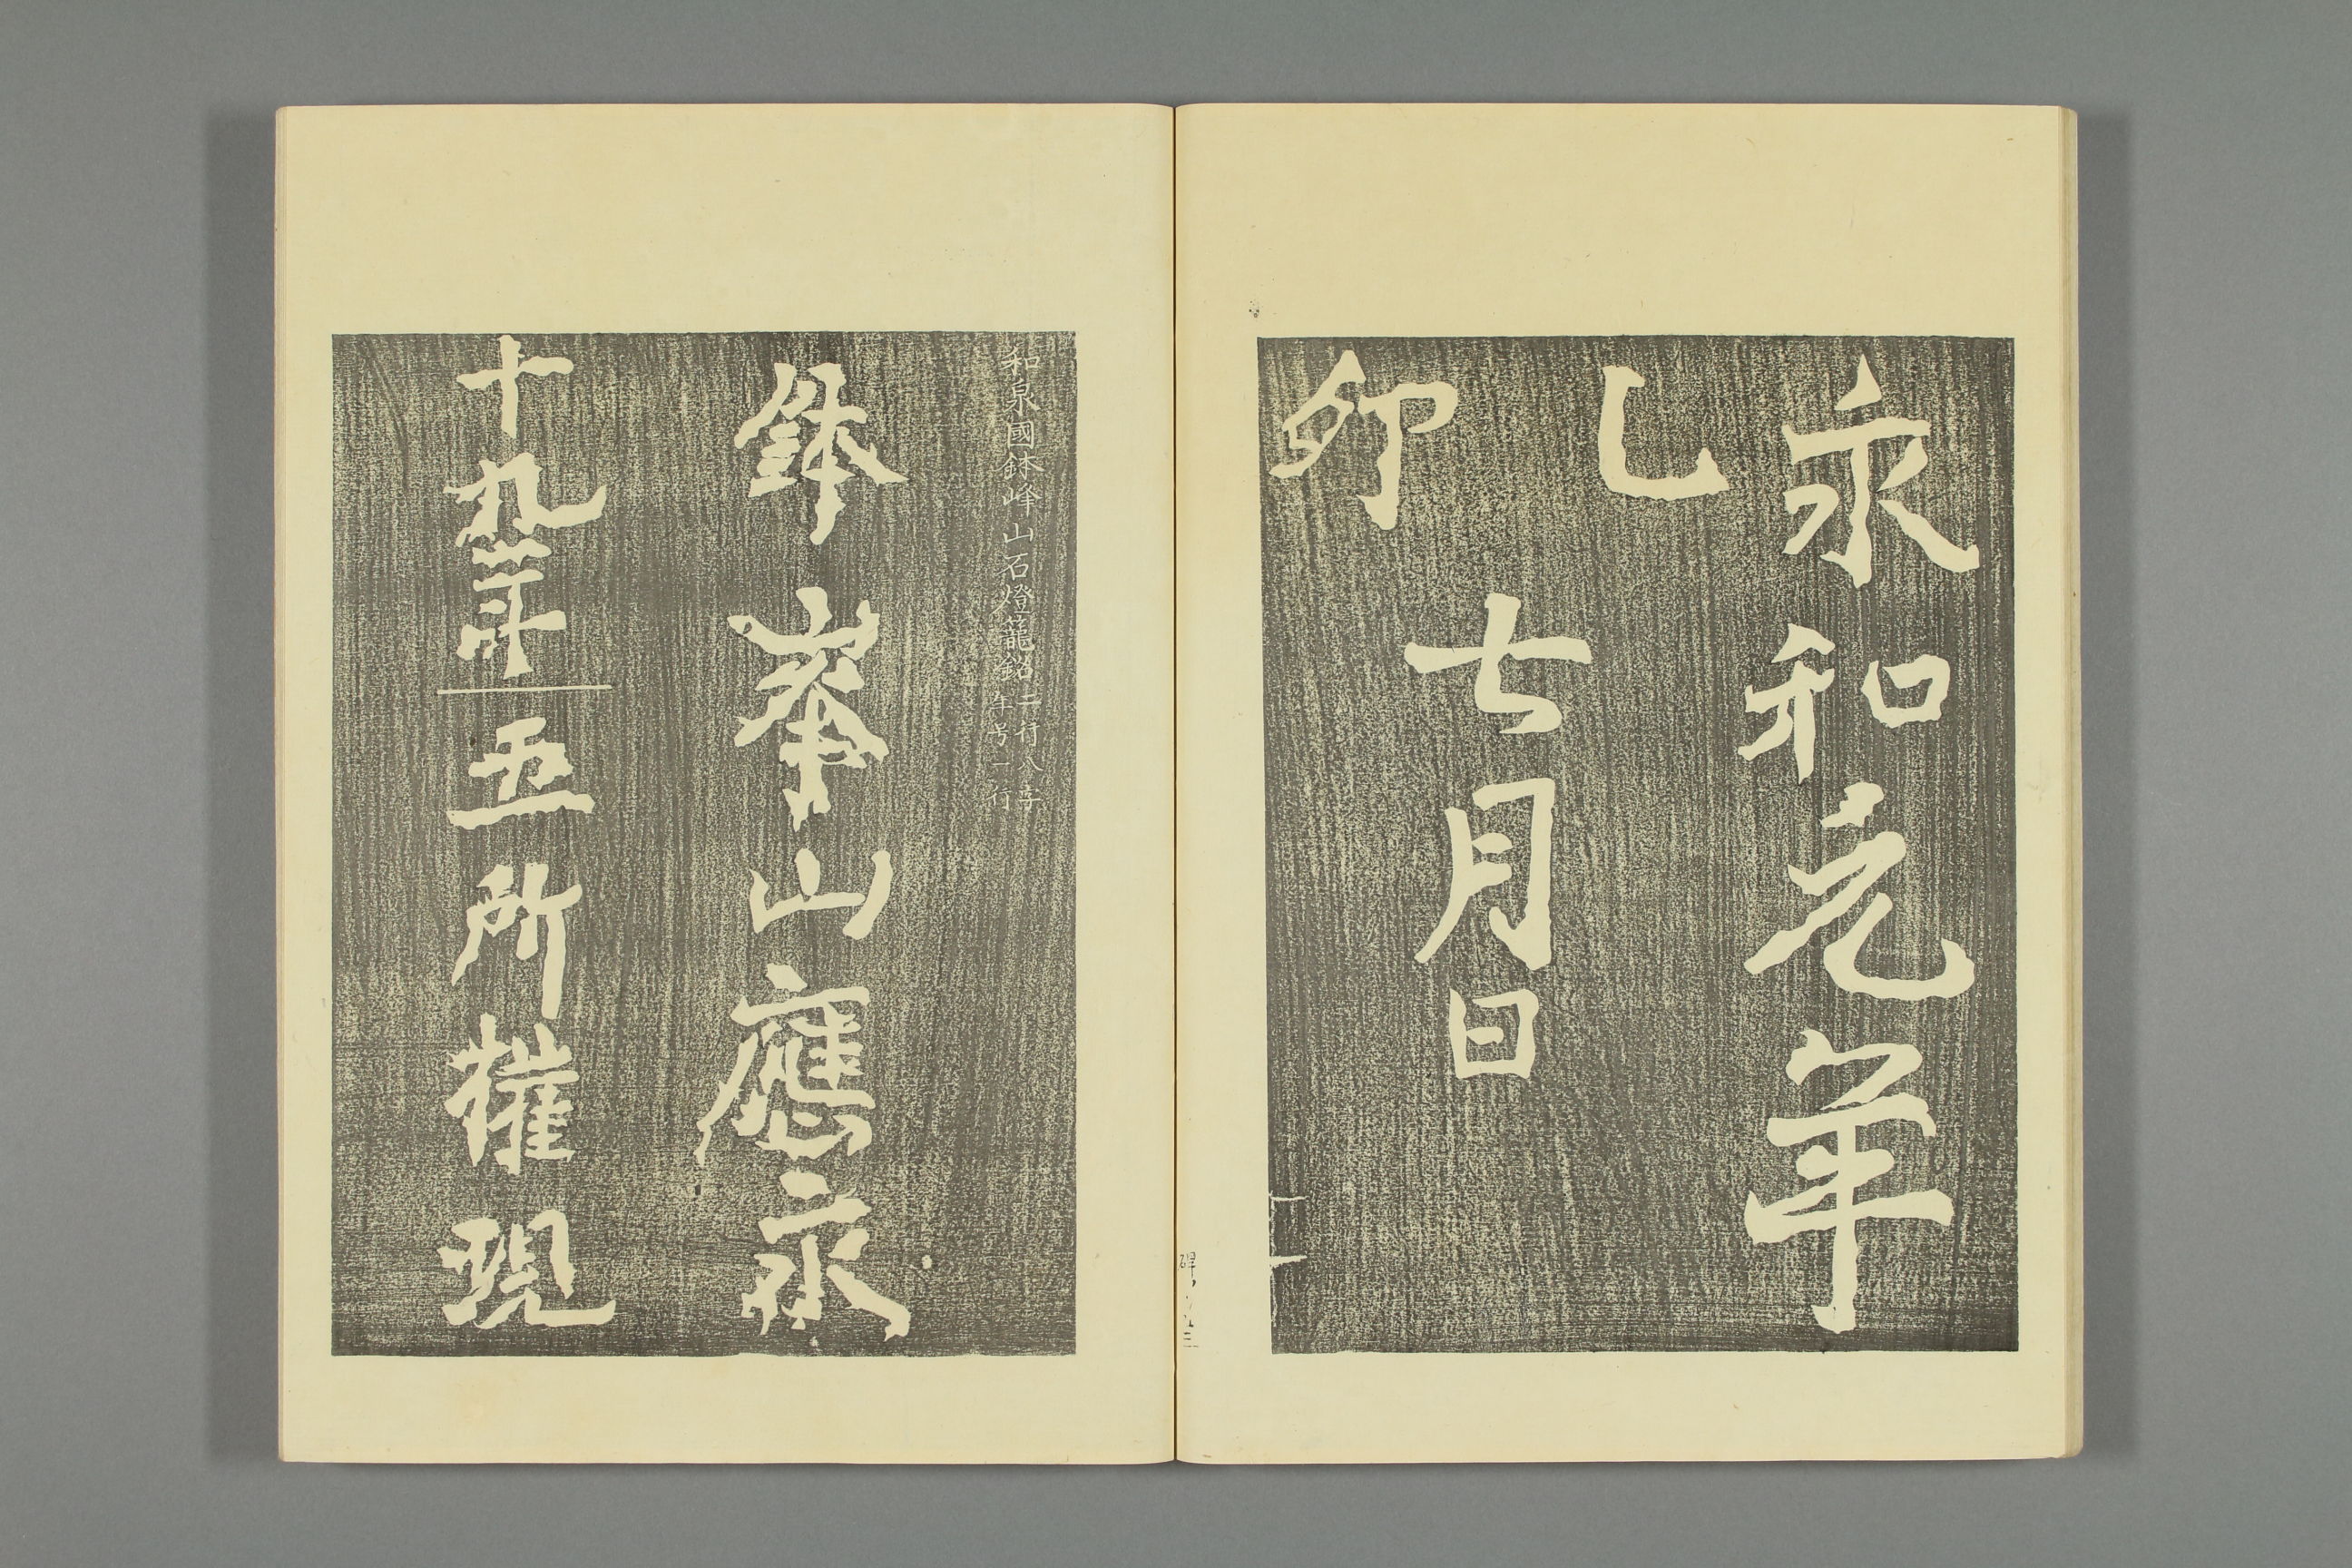 永和元年
乙卯
七月日
和泉國鉢峰山石燈籠銘
二行八字
年号一行
鉢峯山應永
十九年
五所權現